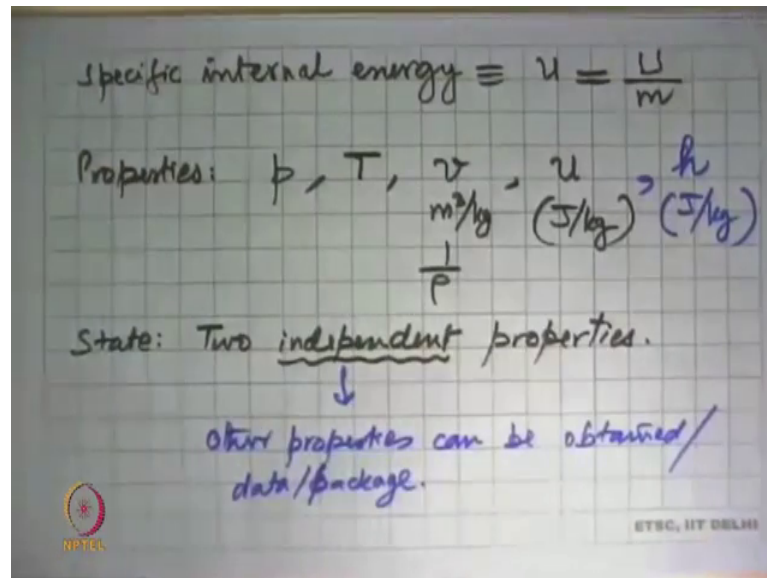 specific internal energy ≡ u = U/m
Properties: p, T, v, u, h
m³/kg (J/kg) (J/kg)
1/ρ
State: Two independent properties.
↓
other properties can be obtained/
data/package.
NPTEL
ETSC, IIT DELHI